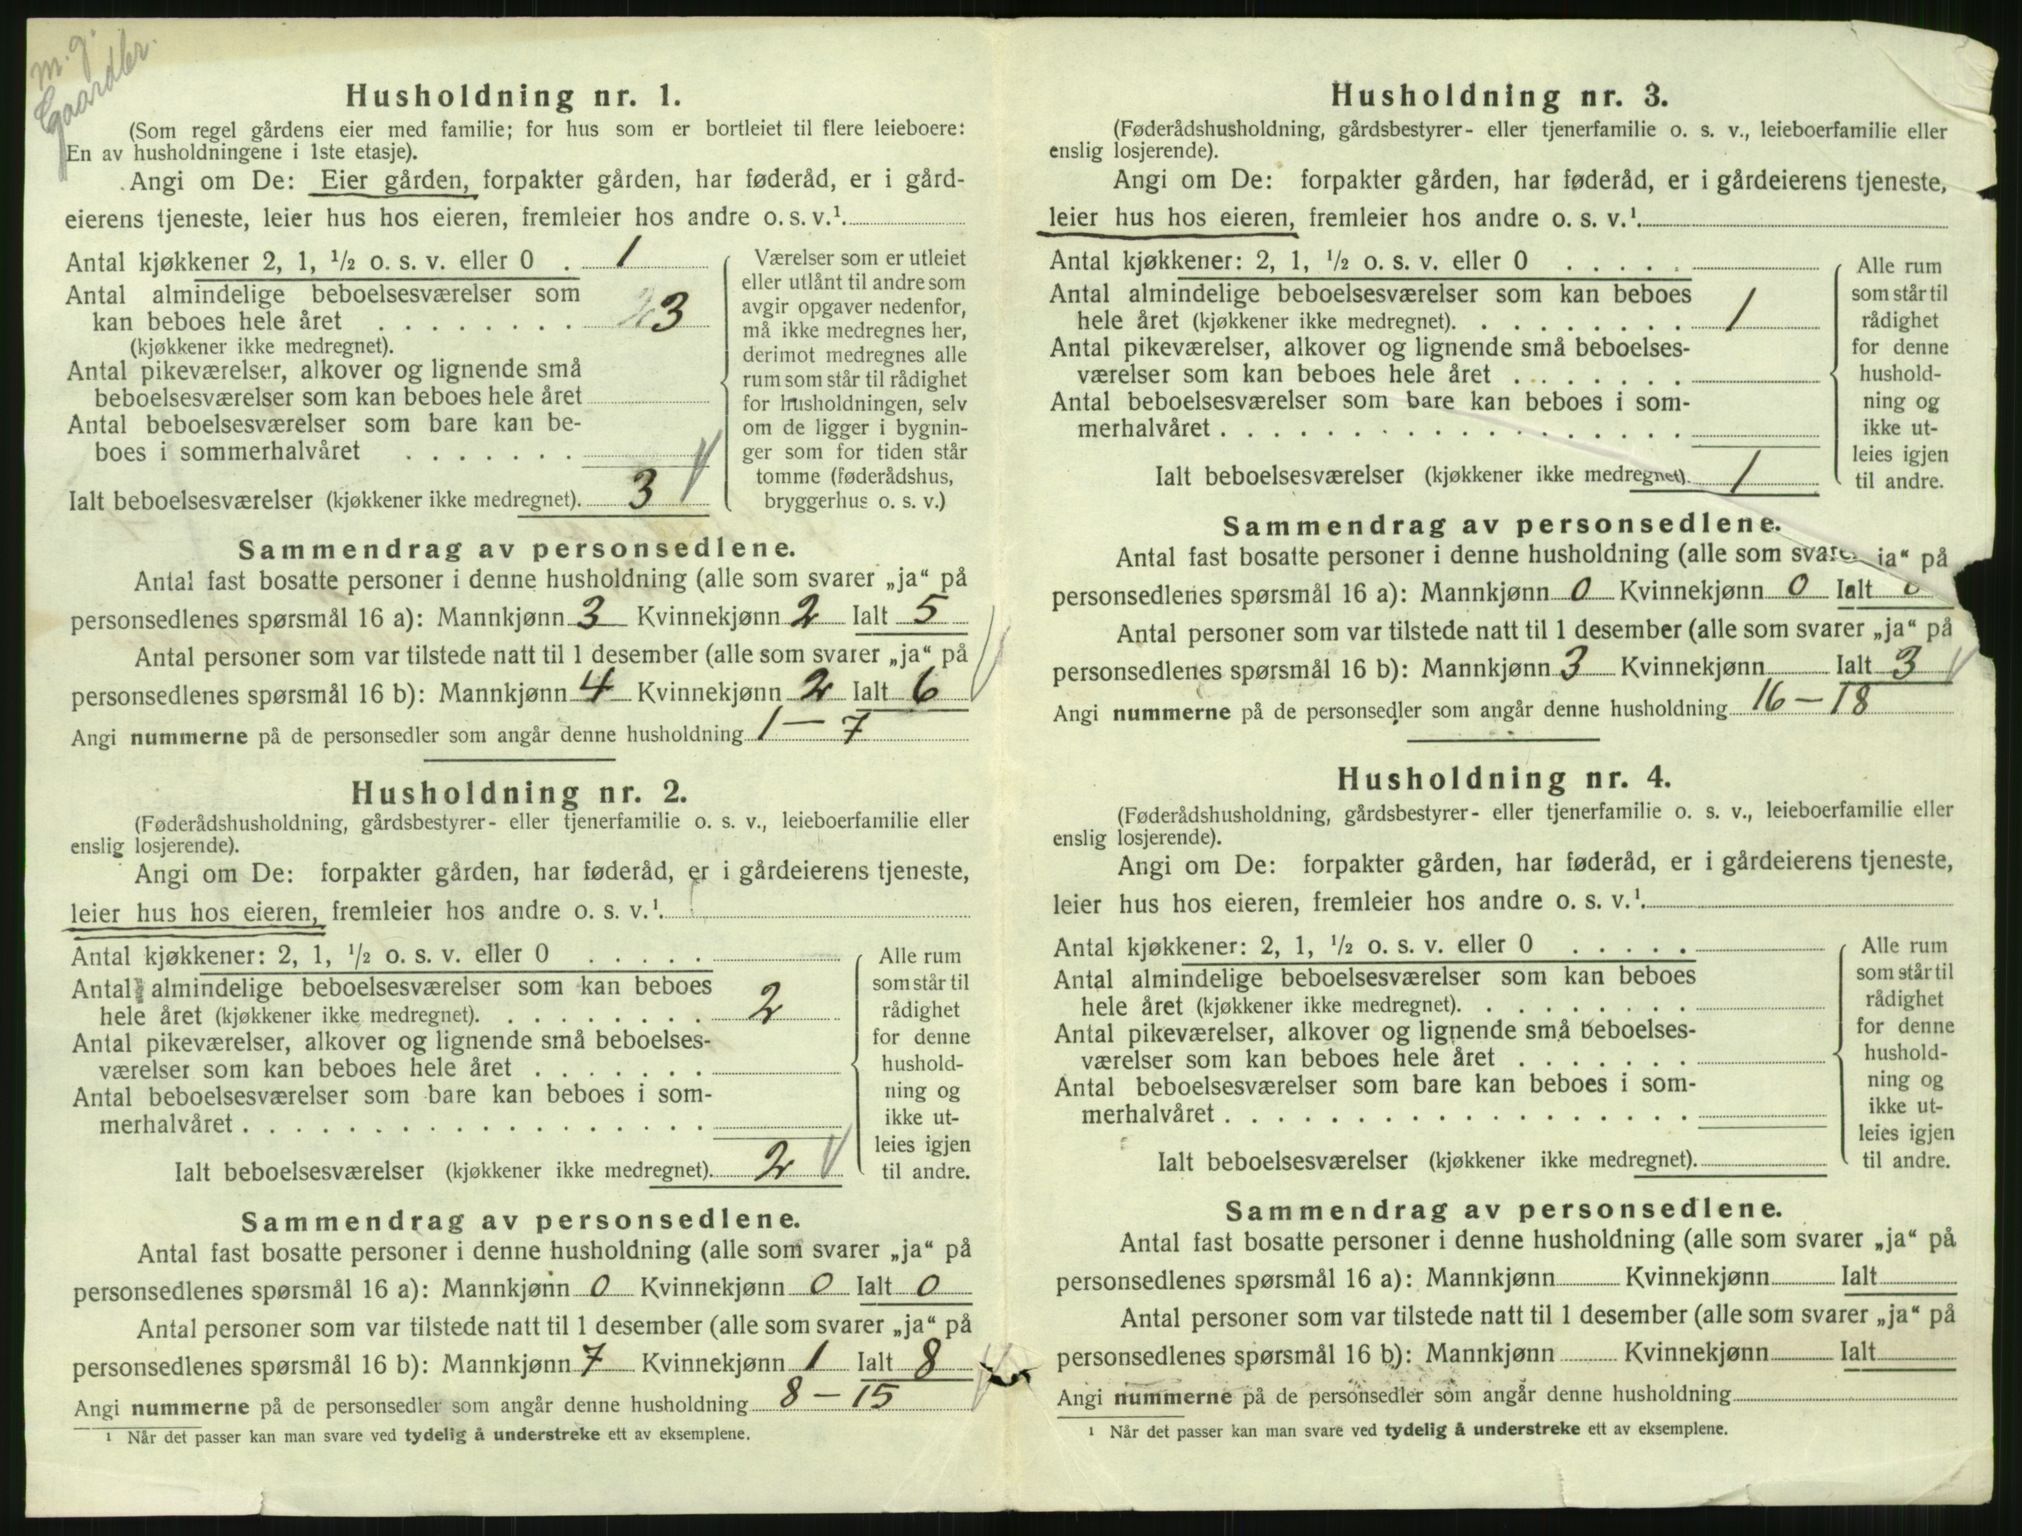 m. g.
Gaardbr.
Husholdning nr. 1.
(Som regel gårdens eier med familie; for hus som er bortleiet til flere leieboere:
En av husholdningene i 1ste etasje).
Angi om De: Eier gården, forpakter gården, har føderåd, er i gård-
eierens tjeneste, leier hus hos eieren, fremleier hos andre o. s. v.¹
Antal kjøkkener 2, 1, ½ o. s. v. eller 0 . 1
Antal almindelige beboelsesværelser som
kan beboes hele året . . . . . . . . 3
(kjøkkener ikke medregnet).
Antal pikeværelser, alkover og lignende små
beboelsesværelser som kan beboes hele året
Antal beboelsesværelser som bare kan be-
boes i sommerhalvåret . . . . . . .
Ialt beboelsesværelser (kjøkkener ikke medregnet). 3
Værelser som er utleiet
eller utlånt til andre som
avgir opgaver nedenfor,
må ikke medregnes her,
derimot medregnes alle
rum som står til rådighet
for husholdningen, selv
om de ligger i bygnin-
ger som for tiden står
tomme (føderådshus,
bryggerhus o. s. v.)
Sammendrag av personsedlene.
Antal fast bosatte personer i denne husholdning (alle som svarer „ja“ på
personsedlenes spørsmål 16 a): Mannkjønn 3 Kvinnekjønn 2 Ialt 5
Antal personer som var tilstede natt til 1 desember (alle som svarer „ja“ på
personsedlenes spørsmål 16 b): Mannkjønn 4 Kvinnekjønn 2 Ialt 6
Angi nummerne på de personsedler som angår denne husholdning 1 — 7
Husholdning nr. 2.
(Føderådshusholdning, gårdsbestyrer- eller tjenerfamilie o. s. v., leieboerfamilie eller
enslig losjerende).
Angi om De: forpakter gården, har føderåd, er i gårdeierens tjeneste,
leier hus hos eieren, fremleier hos andre o. s. v.¹
Antal kjøkkener: 2, 1, ½ o. s. v. eller 0 . . . . .
Antal almindelige beboelsesværelser som kan beboes
hele året (kjøkkener ikke medregnet). . . . . . . . . 2
Antal pikeværelser, alkover og lignende små beboelses-
værelser som kan beboes hele året . . . . . . .
Antal beboelsesværelser som bare kan beboes i som-
merhalvåret . . . . . . . . . . . . . . . . . .
Ialt beboelsesværelser (kjøkkener ikke medregnet). 2
Alle rum
som står til
rådighet
for denne
hushold-
ning og
ikke ut-
leies igjen
til andre.
Sammendrag av personsedlene.
Antal fast bosatte personer i denne husholdning (alle som svarer „ja“ på
personsedlenes spørsmål 16 a): Mannkjønn 0 Kvinnekjønn 0 Ialt 0
Antal personer som var tilstede natt til 1 desember (alle som svarer „ja“ på
personsedlenes spørsmål 16 b): Mannkjønn 7 Kvinnekjønn 1 Ialt 8
Angi nummerne på de personsedler som angår denne husholdning 8 — 15
¹ Når det passer kan man svare ved tydelig å understreke ett av eksemplene.
Husholdning nr. 3.
(Føderådshusholdning, gårdsbestyrer- eller tjenerfamilie o. s. v., leieboerfamilie eller
enslig losjerende).
Angi om De: forpakter gården, har føderåd, er i gårdeierens tjeneste,
leier hus hos eieren, fremleier hos andre o. s. v.¹
Antal kjøkkener: 2, 1, ½ o. s. v. eller 0 . . . . .
Antal almindelige beboelsesværelser som kan beboes
hele året (kjøkkener ikke medregnet). . . . . . . . . 1
Antal pikeværelser, alkover og lignende små beboelses-
værelser som kan beboes hele året . . . . . . .
Antal beboelsesværelser som bare kan beboes i som-
merhalvåret . . . . . . . . . . . . . . . . . .
Ialt beboelsesværelser (kjøkkener ikke medregnet). 1
Alle rum
som står til
rådighet
for denne
hushold-
ning og
ikke ut-
leies igjen
til andre.
Sammendrag av personsedlene.
Antal fast bosatte personer i denne husholdning (alle som svarer ja“ på
personsedlenes spørsmål 16 a): Mannkjønn 0 Kvinnekjønn 0 Ialt 0
Antal personer som var tilstede natt til 1 desember (alle som svarer „ja“ på
personsedlenes spørsmål 16 b): Mannkjønn 3 Kvinnekjønn Ialt 3
Angi nummerne på de personsedler som angår denne husholdning 16 — 18
Husholdning nr. 4.
(Føderådshusholdning, gårdsbestyrer- eller tjenerfamilie o. s. v., leieboerfamilie eller
enslig losjerende).
Angi om De: forpakter gården, har føderåd, er i gårdeierens tjeneste,
leier hus hos eieren, fremleier hos andre o. s. v.¹
Antal kjøkkener: 2, 1, ½ o. s. v. eller 0 . . . . .
Antal almindelige beboelsesværelser som kan beboes
hele året (kjøkkener ikke medregnet). . . . . . . . .
Antal pikeværelser, alkover og lignende små beboelses-
værelser som kan beboes hele året . . . . . . .
Antal beboelsesværelser som bare kan beboes i som-
merhalvåret . . . . . . . . . . . . . . . . . .
Ialt beboelsesværelser (kjøkkener ikke medregnet).
Alle rum
som står til
rådighet
for denne
hushold-
ning og
ikke ut-
leies igjen
til andre.
Sammendrag av personsedlene.
Antal fast bosatte personer i denne husholdning (alle som svarer „ja“ på
personsedlenes spørsmål 16 a): Mannkjønn Kvinnekjønn Ialt
Antal personer som var tilstede natt til 1 desember (alle som svarer „ja“ på
personsedlenes spørsmål 16 b): Mannkjønn Kvinnekjønn Ialt
Angi nummerne på de personsedler som angår denne husholdning
¹ Når det passer kan man svare ved tydelig å understreke ett av eksemplene.